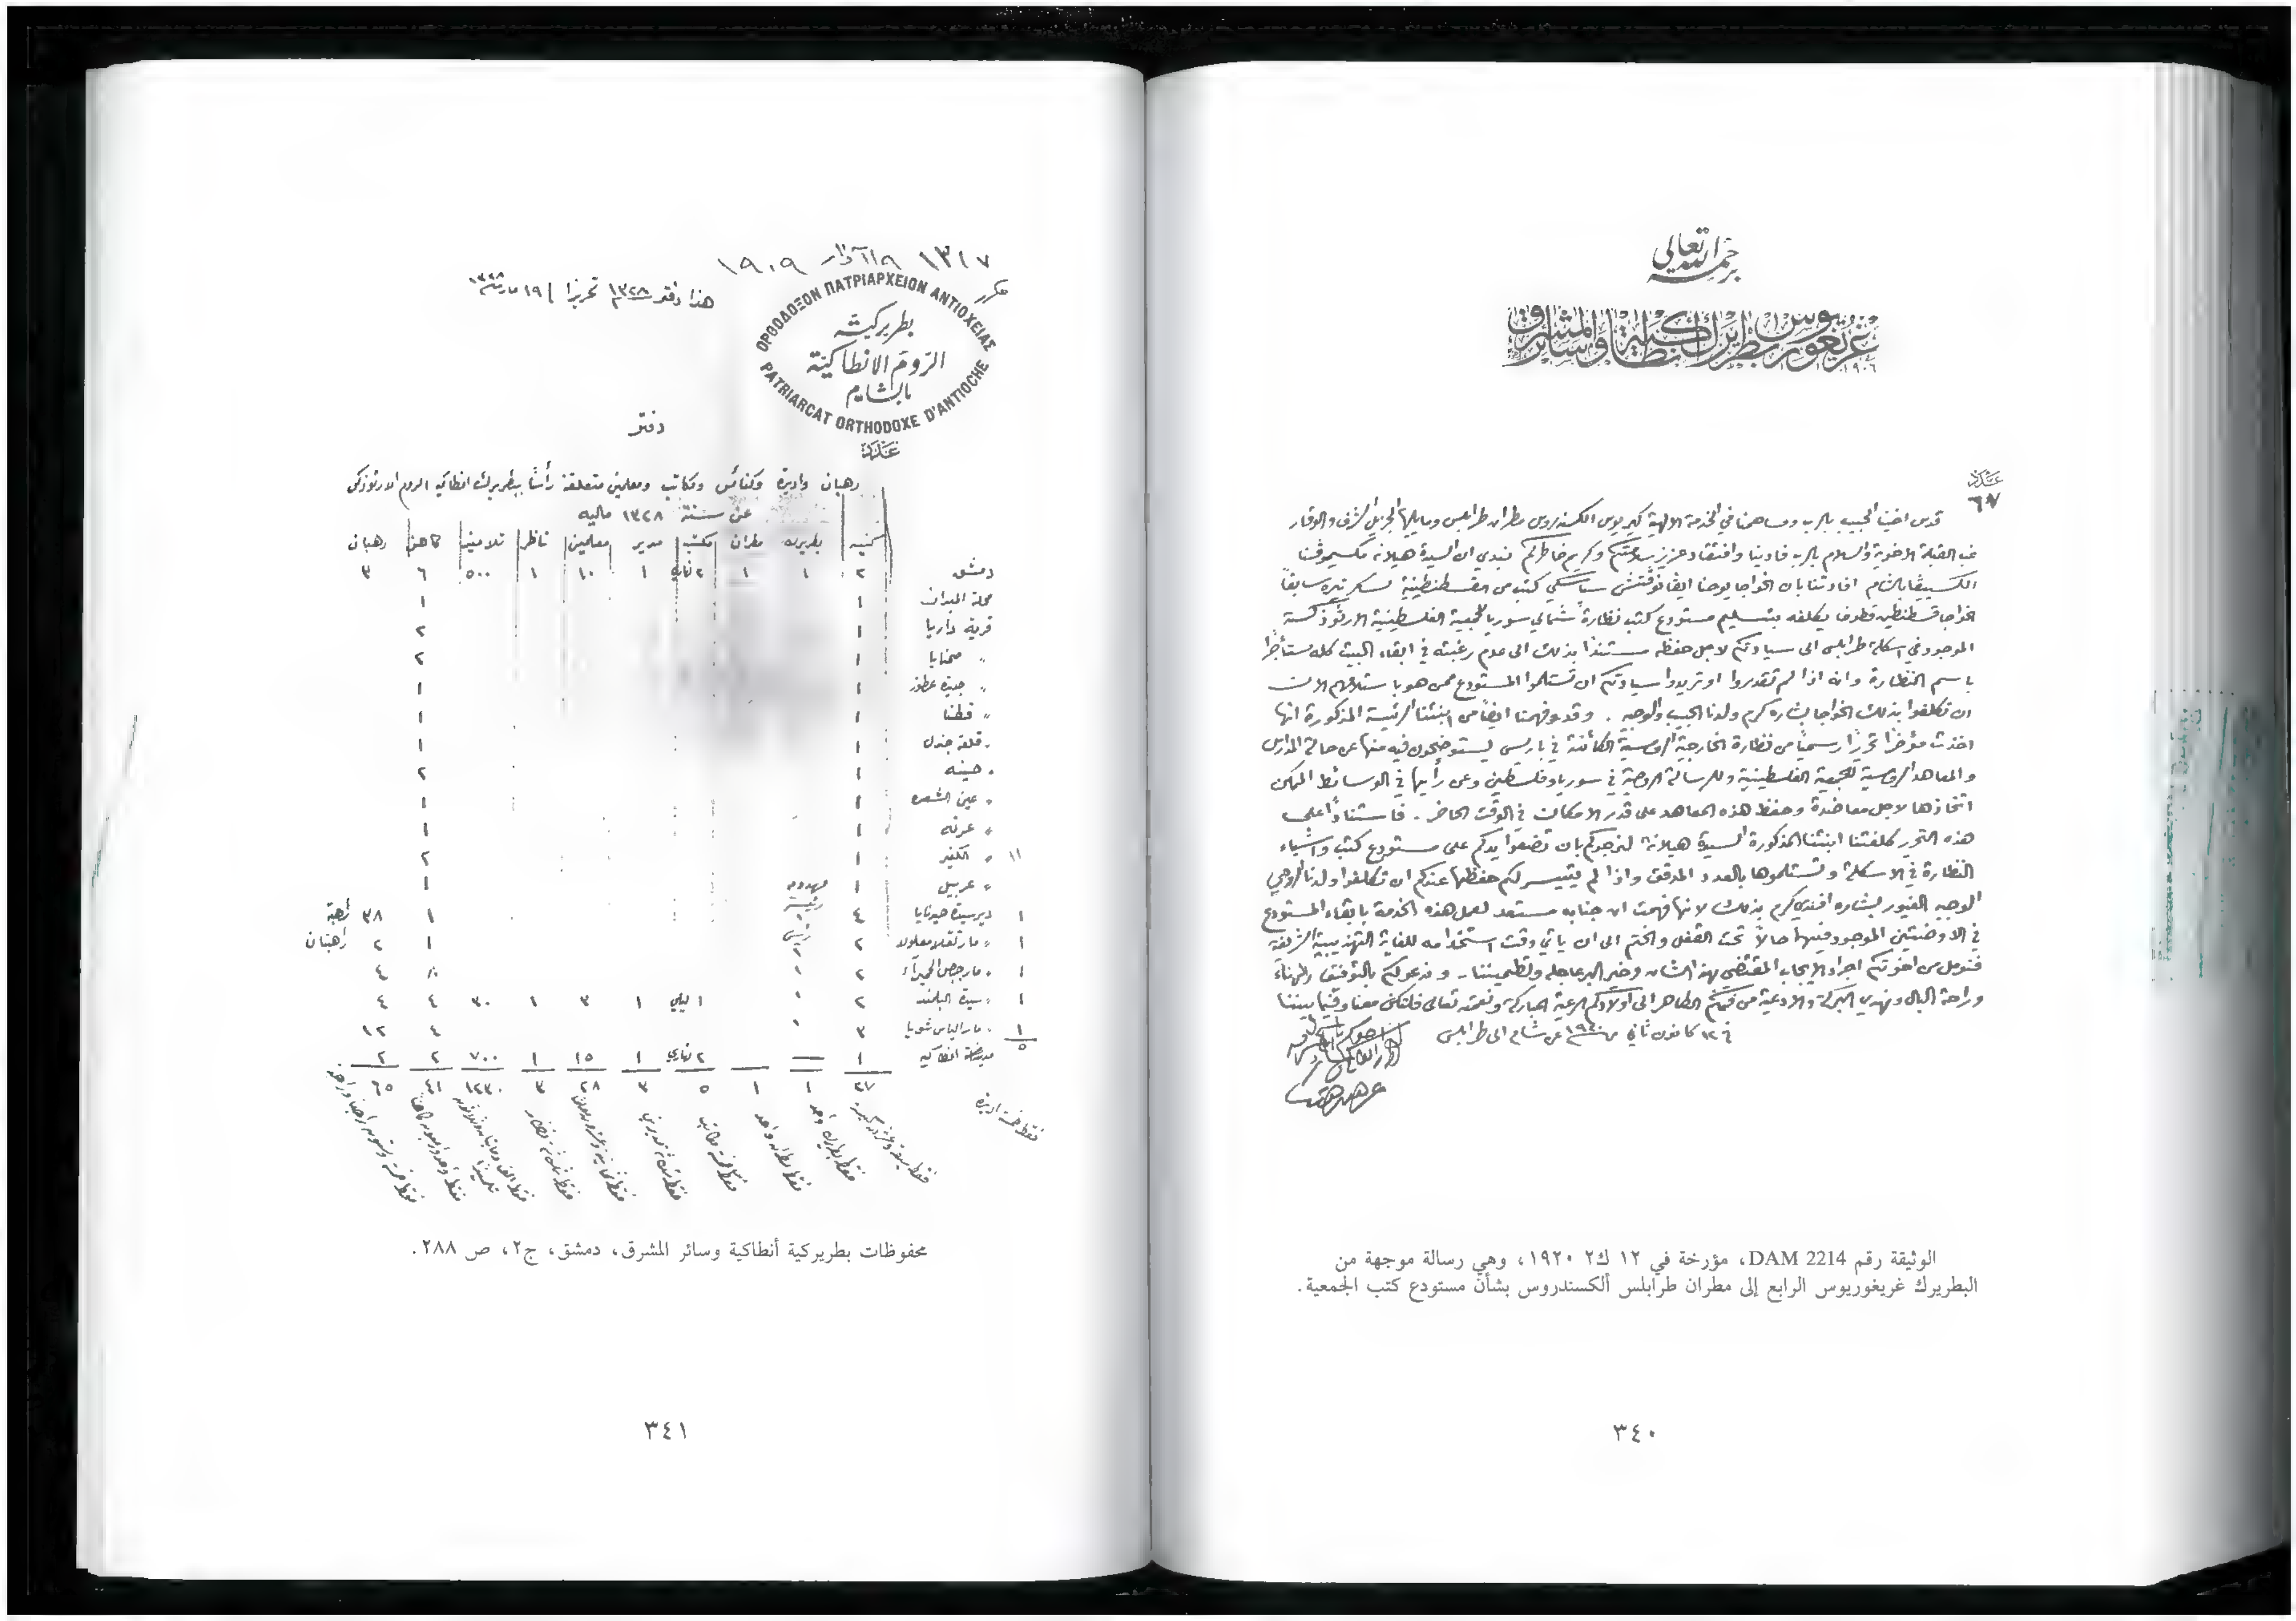 برحمة الله تعالى
غريغوريوس بطريرك انطاكية وسائر المشرق
١٩٠٦
عدد
٦٧
قدس اخينا الحبيب بالرب ومساهمنا في الخدمة الالهية كيريوس الكسندروس مطران طرابلس وما يليها الجزيل الشرف والوقار
غب القبلة الاخوية والسلام بالرب فادينا وافتقاد عزيز سلامتكم وكريم خاطركم نبدي ان السيدة هيلانه
بالشام افادتنا بان الخواجا يوحنا كتب من القسطنطينية لسكرتيره سابقاً
الخواجا قسطنطين يكلفه بتسليم مستودع كتب نظارة شمالي سوريا للجمعية الفلسطينية الارثوذكسية
الموجود في اسكلة طرابلس الى سيادتكم لاجل حفظه مستنداً بذلك الى عدم رغبته في ابقاء البيت كله مستأجراً
باسم النظارة وانه اذا لم تقدروا او تريدوا سيادتكم ان تستلموا المستودع
ان تكلفوا بذلك الخواجا بشاره كرم ولدنا الحبيب والوجيه . وقد وفهمنا ايضاً من ابنتنا الرئيسة المذكورة انها
اخذت مؤخراً تحريراً رسمياً من نظارة الخارجية الروسية الكائنة في باريس يستوضحون فيه منها عن حالة المدارس
والمعاهد الروسية للجمعية الفلسطينية وللرسالة الروحية في سوريا وفلسطين وعن رأيها في الوسائط الممكن
اتخاذها لاجل معاضدة وحفظ هذه المعاهد على قدر الامكان في الوقت الحاضر . فاستناداً على
هذه التحرير كلفتنا ابنتنا المذكورة السيدة هيلانة لنرجوكم بان تضعوا يدكم على مستودع كتب واشياء
النظارة في الاسكلة وتستلموها بالعدد المدقق واذا لم يتيسر لكم حفظها عندكم ان تكلفوا ولدنا الروحي
الوجيه الغيور بشاره افندي كرم بذلك لانها فهمت ان جنابه مستعد لعمل هذه الخدمة بابقاء المستودع
في الاوضتين الموجود فيها حالاً تحت القفل والختم الى ان يأتي وقت استخدامه للغاية التهذيبية الشريفة
فنؤمل من اخوتكم اجراء الايجاب المقتضى بهذا الشان وخبر البر عاجله ولطمينتنا . وندعو لكم بالتوفيق والهناء
وراحة البال ونهدي البركة والادعية من فمكم الطاهر الى اولادكم الرعية المباركة ونعمته تعالى فلتكن معنا وفيما بيننا
في ١٢ كانون ثاني سنة ١٩٢٠ من شام الى طرابلس
الوثيقة رقم DAM 2214، مؤرخة في ١٢ ك٢ ١٩٢٠، وهي رسالة موجهة من
البطريرك غريغوريوس الرابع إلى مطران طرابلس ألكسندروس بشأن مستودع كتب الجمعية.
٣٤٠
١٣١٧ ١٩ آذار ١٩٠٩
مكرر
هذا دفتر ١٣٢٨ تحريراً
ΟΡΘΟΔΟΞΟΝ ΠΑΤΡΙΑΡΧΕΙΟΝ ΑΝΤΙΟΧΕΙΑΣ
بطريركية
الروم الانطاكية
بالشام
PATRIARCAT ORTHODOXE D'ANTIOCHE
عدد
دفتر
رهبان واديرة وكنائس ومكاتب ومعلمين متعلقة رأساً ببطريرك انطاكيه الروم الارثوذكس
عن سنة ١٣٢٨ ماليه
كنيسه بطريرك مطران مكتب مدير معلمين ناظر تلاميذ كاهن رهبان
دمشق ٢ ١ ١ ٢ نهاري ١ ١٠ ١ ٥٠٠ ٦ ٣
محلة الميدان ١ ١
قرية داريا ١ ٢
" صحنايا ١ ٢
" جديدة عطوز ١ ١
" قطنا ١ ١
" قلعة جندل ١ ١
" حينه ١ ٢
" عين الشعره ١ ١
" عرنه ١ ١
١١ " الكفير ١ ٢
" عربيل ١ ١
١ دير سيدة صيدنايا ٤ ١ ٣٨ راهبة
١ " مار تقلا معلولا ٢ ١ ٢ راهبتان
١ " مار جرجس الحميراء ٢ ٤
١ " سيدة البلمند ٢ ١ ليلي ١ ٣ ١ ٣٠ ٤ ٤
١ " مار الياس شويا ٣ ٤ ١٢
٥ مدينة انطاكيه ١ ٢ نهاري ١ ١٥ ١ ٧٠٠ ٢ ٢
٢٧ ١ ١ ٥ ٣ ٢٨ ٣ ١٢٣٠ ٤١ ٦٥
فقط خمسة اديرة
فقط بطريرك واحد
فقط مطران واحد
فقط خمسة مكاتب
محفوظات بطريركية أنطاكية وسائر المشرق، دمشق، ج٢، ص ٢٨٨.
٣٤١